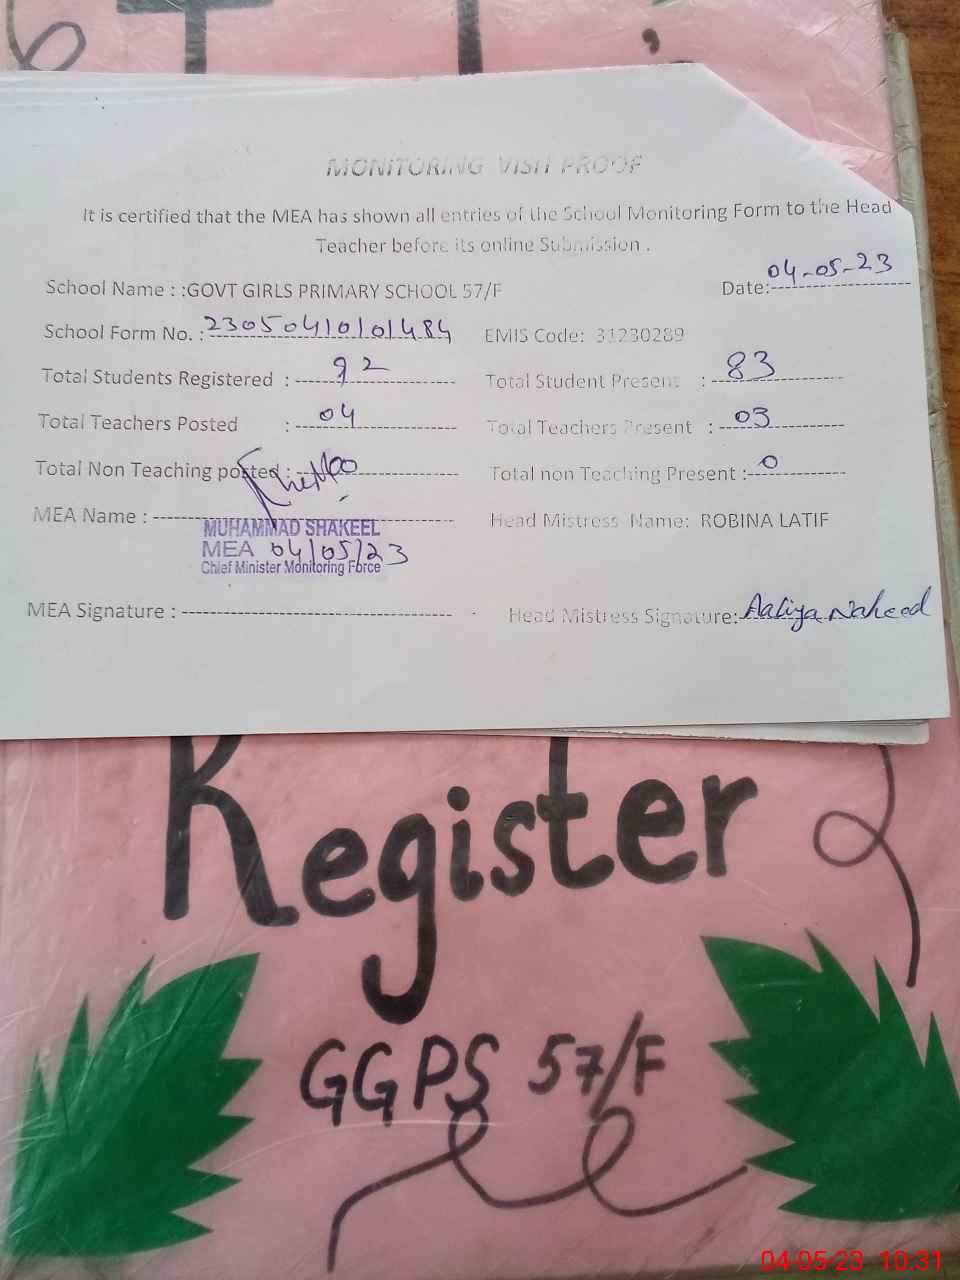 MONITORING VISIT PROOF
It is certified that the MEA has shown all entries of the School Monitoring Form to the Head
Teacher before its online Submission .
School Name : :GOVT GIRLS PRIMARY SCHOOL 57/F Date: 04-05-23
School Form No. : 23050410101484 EMIS Code: 31230289
Total Students Registered : 92 Total Student Present : 83
Total Teachers Posted : 04 Total Teachers Present : 03
Total Non Teaching posted : 00 Total non Teaching Present : 0
MEA Name : Head Mistress Name: ROBINA LATIF
MUHAMMAD SHAKEEL
MEA 04/05/23
Chief Minister Monitoring Force
MEA Signature : Head Mistress Signature: Aaliya Naheed
Register
GGPS 57/F
04-05-23 10:31